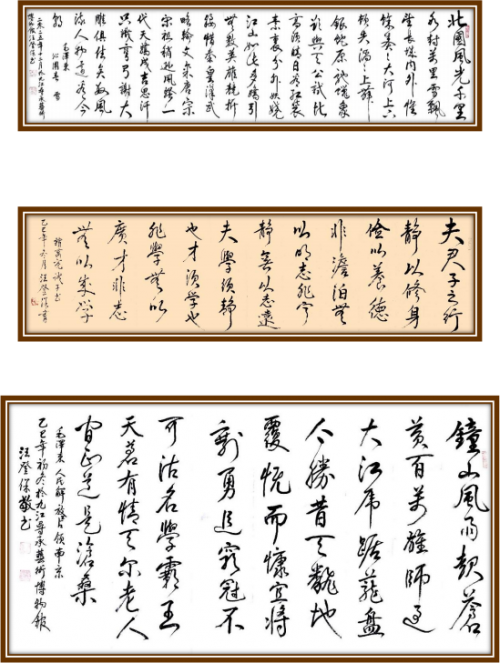 北國風光千里
冰封万里雪飄
望長城内外惟
餘莽莽大河上下
頓失滔滔山舞
銀蛇原馳蠟象
欲與天公試比
高須晴日看紅裝
素裹分外妖嬈
江山如此多嬌引
無數英雄競折
腰惜秦皇漢武
略輸文采唐宗
宋祖稍遜風騷一
代天驕成吉思汗
只識彎弓射大
雕俱往矣數風
流人物還看今
朝
毛澤東
沁園春 雪
二零二五年十二月於九江尋承藝術
博物館汪登保書
夫君子之行
静以修身
儉以養德
非澹泊無
以明志非寧
静無以致遠
夫學須静
也才須學也
非學無以
廣才非志
無以成學
諸葛亮誡子書
乙巳年冬月汪登保書
鐘山風雨起蒼
黄百萬雄師過
大江虎踞龍盤
今勝昔天翻地
覆慨而慷宜將
剩勇追窮寇不
可沽名學霸王
天若有情天亦老人
間正道是滄桑
毛澤東人民解放軍占領南京
乙巳年初冬於九江尋承藝術博物館
汪登保敬書